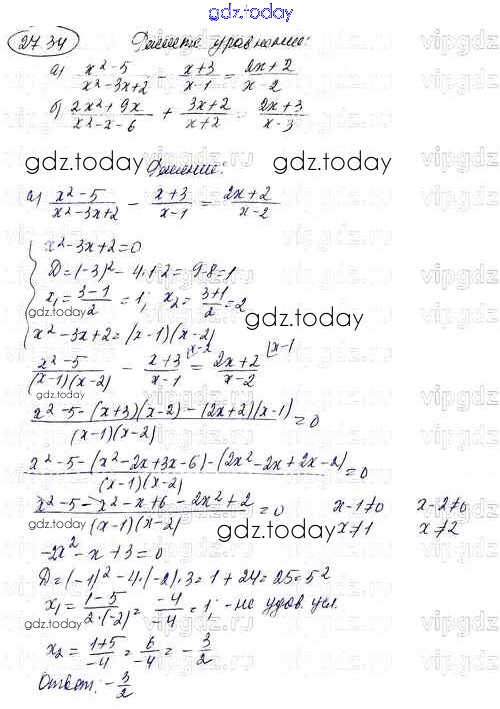 gdz.today
27.34 Решить уравнение:
а) (x²-5)/(x²-3x+2) - (x+3)/(x-1) = (2x+2)/(x-2)
б) (2x²+9x)/(x²-x-6) + (3x+2)/(x+2) = (2x+3)/(x-3)
gdz.today
Решение:
а) (x²-5)/(x²-3x+2) - (x+3)/(x-1) = (2x+2)/(x-2)
x²-3x+2=0
D=(-3)²-4·1·2=9-8=1
x₁=(3-1)/2=1; x₂=(3+1)/2=2
x²-3x+2=(x-1)(x-2)
(x²-5)/((x-1)(x-2)) - (x+3)/(x-1) |x-2 = (2x+2)/(x-2) |x-1
(x²-5-(x+3)(x-2)-(2x+2)(x-1))/((x-1)(x-2))=0
(x²-5-(x²-2x+3x-6)-(2x²-2x+2x-2))/((x-1)(x-2))=0
(x²-5-x²-x+6-2x²+2)/((x-1)(x-2))=0 x-1≠0 x-2≠0
x≠1 x≠2
-2x²-x+3=0
D=(-1)²-4·(-2)·3=1+24=25=5²
x₁=(1-5)/(2·(-2))=(-4)/(-4)=1; - не удов. усл.
x₂=(1+5)/(-4)=6/(-4)=-3/2
Ответ: -3/2